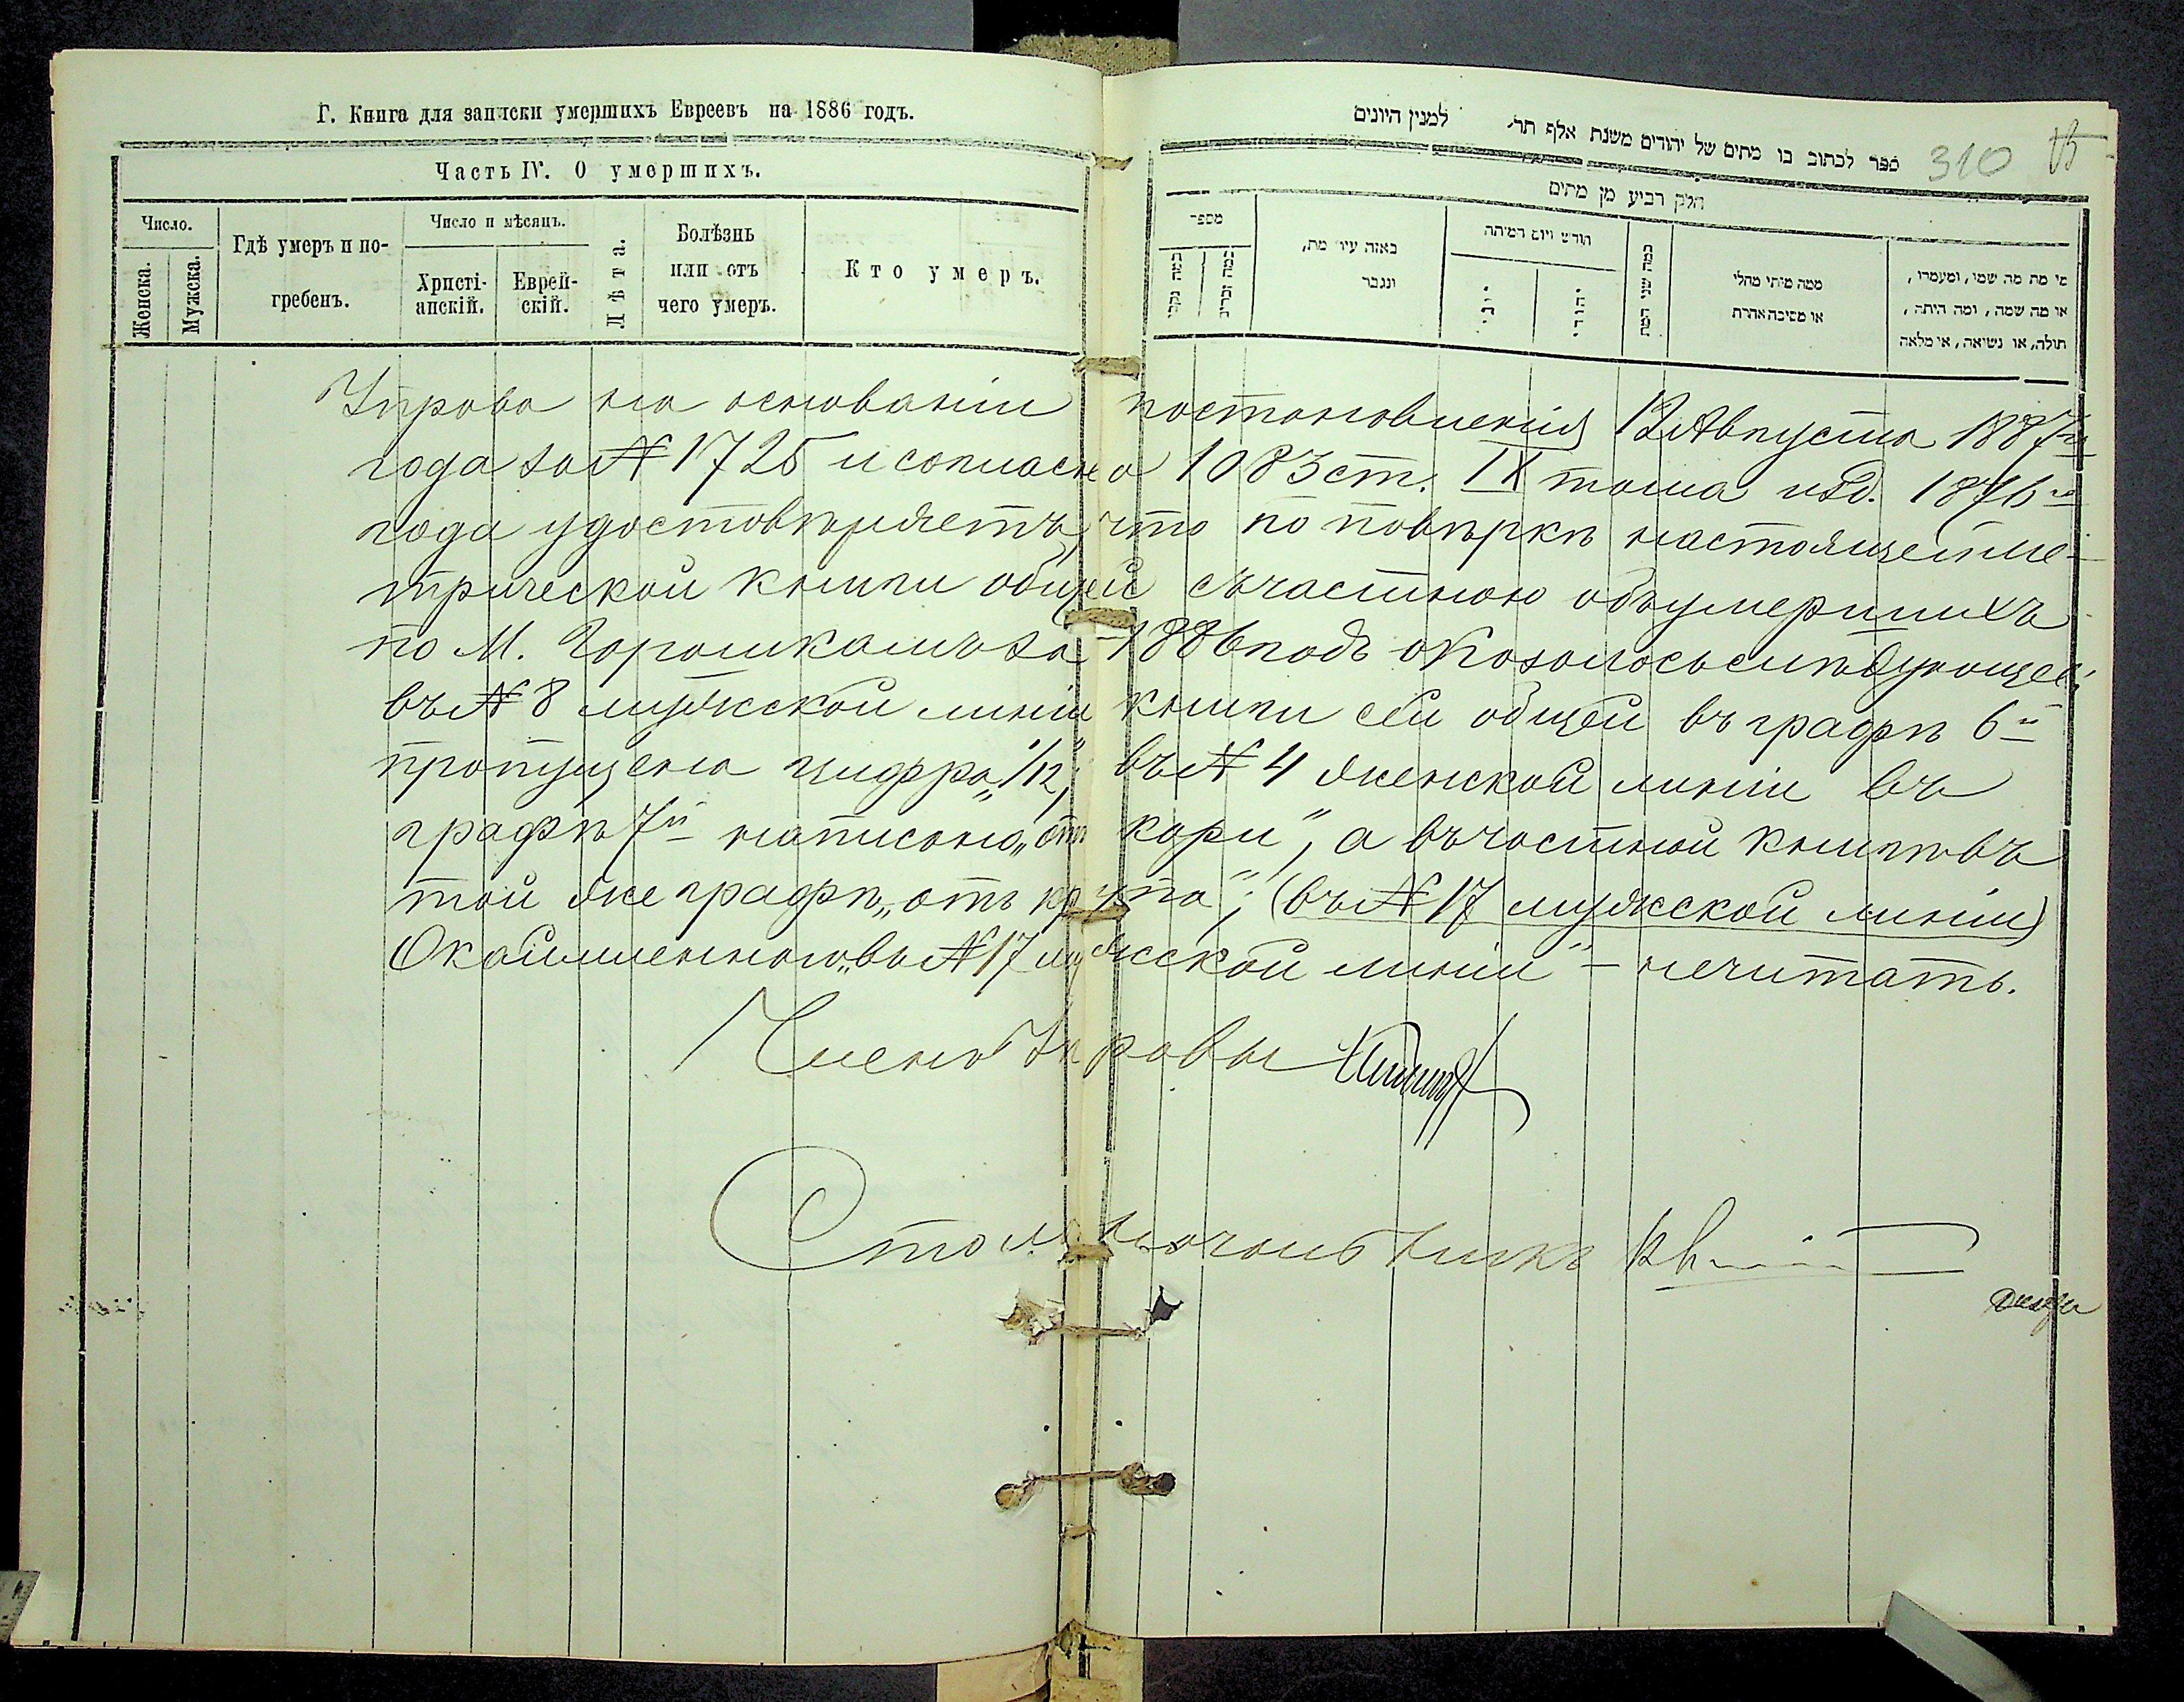 Г. Книга для записки умершихъ Евреевъ на 1886 годъ.
Часть IV. О умершихъ.
Число.
Женска.
Мужска.
Гдѣ умеръ и по-
гребенъ.
Число и мѣсяцъ.
Христі-
анскій.
Еврей-
скій.
Лѣта.
Болѣзнь
или отъ
чего умеръ.
Кто умеръ.
ספר לכתוב בו מתים של יהודים משנת אלף תר׳ למנין היונים
310
חלק רביע מן מתים
מספר
באזה עיר מת,
ונגבר
חודש ויום המיתה
יוני
יהודי
כמה שני המת
ממה מיתי מחלי
או מסיבה אחרת
מי מת מה שמו, ומעמדו,
או מה שמה, ומה היתה,
תולה, או נשיאה, אי מלאה
Управа на основаніи постановленія 12 Августа 1887го
года за № 1725 и согласно 1083 ст. IX тома изд. 1876го
года удостовѣряетъ, что по повѣркѣ настоящей ме-
трической книги общей съ частною объ умершихъ
по М. Горошкамъ за 1886 годъ оказалось слѣдующее:
въ № 8 мужской линіи книги сей общей въ графѣ 6й
пропущена цифра „1/12“; въ № 4 женской линіи въ
графѣ 7й написано „отъ кори“, а въ частной книгѣ въ
той же графѣ „отъ крупа“; (въ № 17 мужской линіи)
Окаймленнаго „въ № 17 мужской линіи“ – не читать.
Членъ Управы
Столоначальникъ